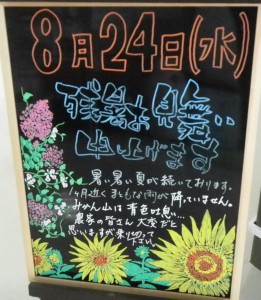 8月24日(水)
残暑お見舞い
申し上げます
暑い暑い夏が続いております。
1ヶ月近くまともな雨が降っていません。
みかん山は青色吐息…
農家の皆さん大変だと
思いますが乗り切って
下さい。